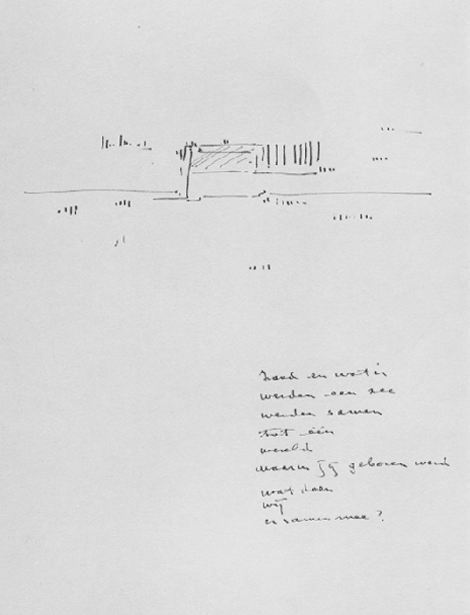 land en water
werden een zee
werden samen
tot één
wereld
waarin jij geboren werd
wat doen
wij
er samen mee?